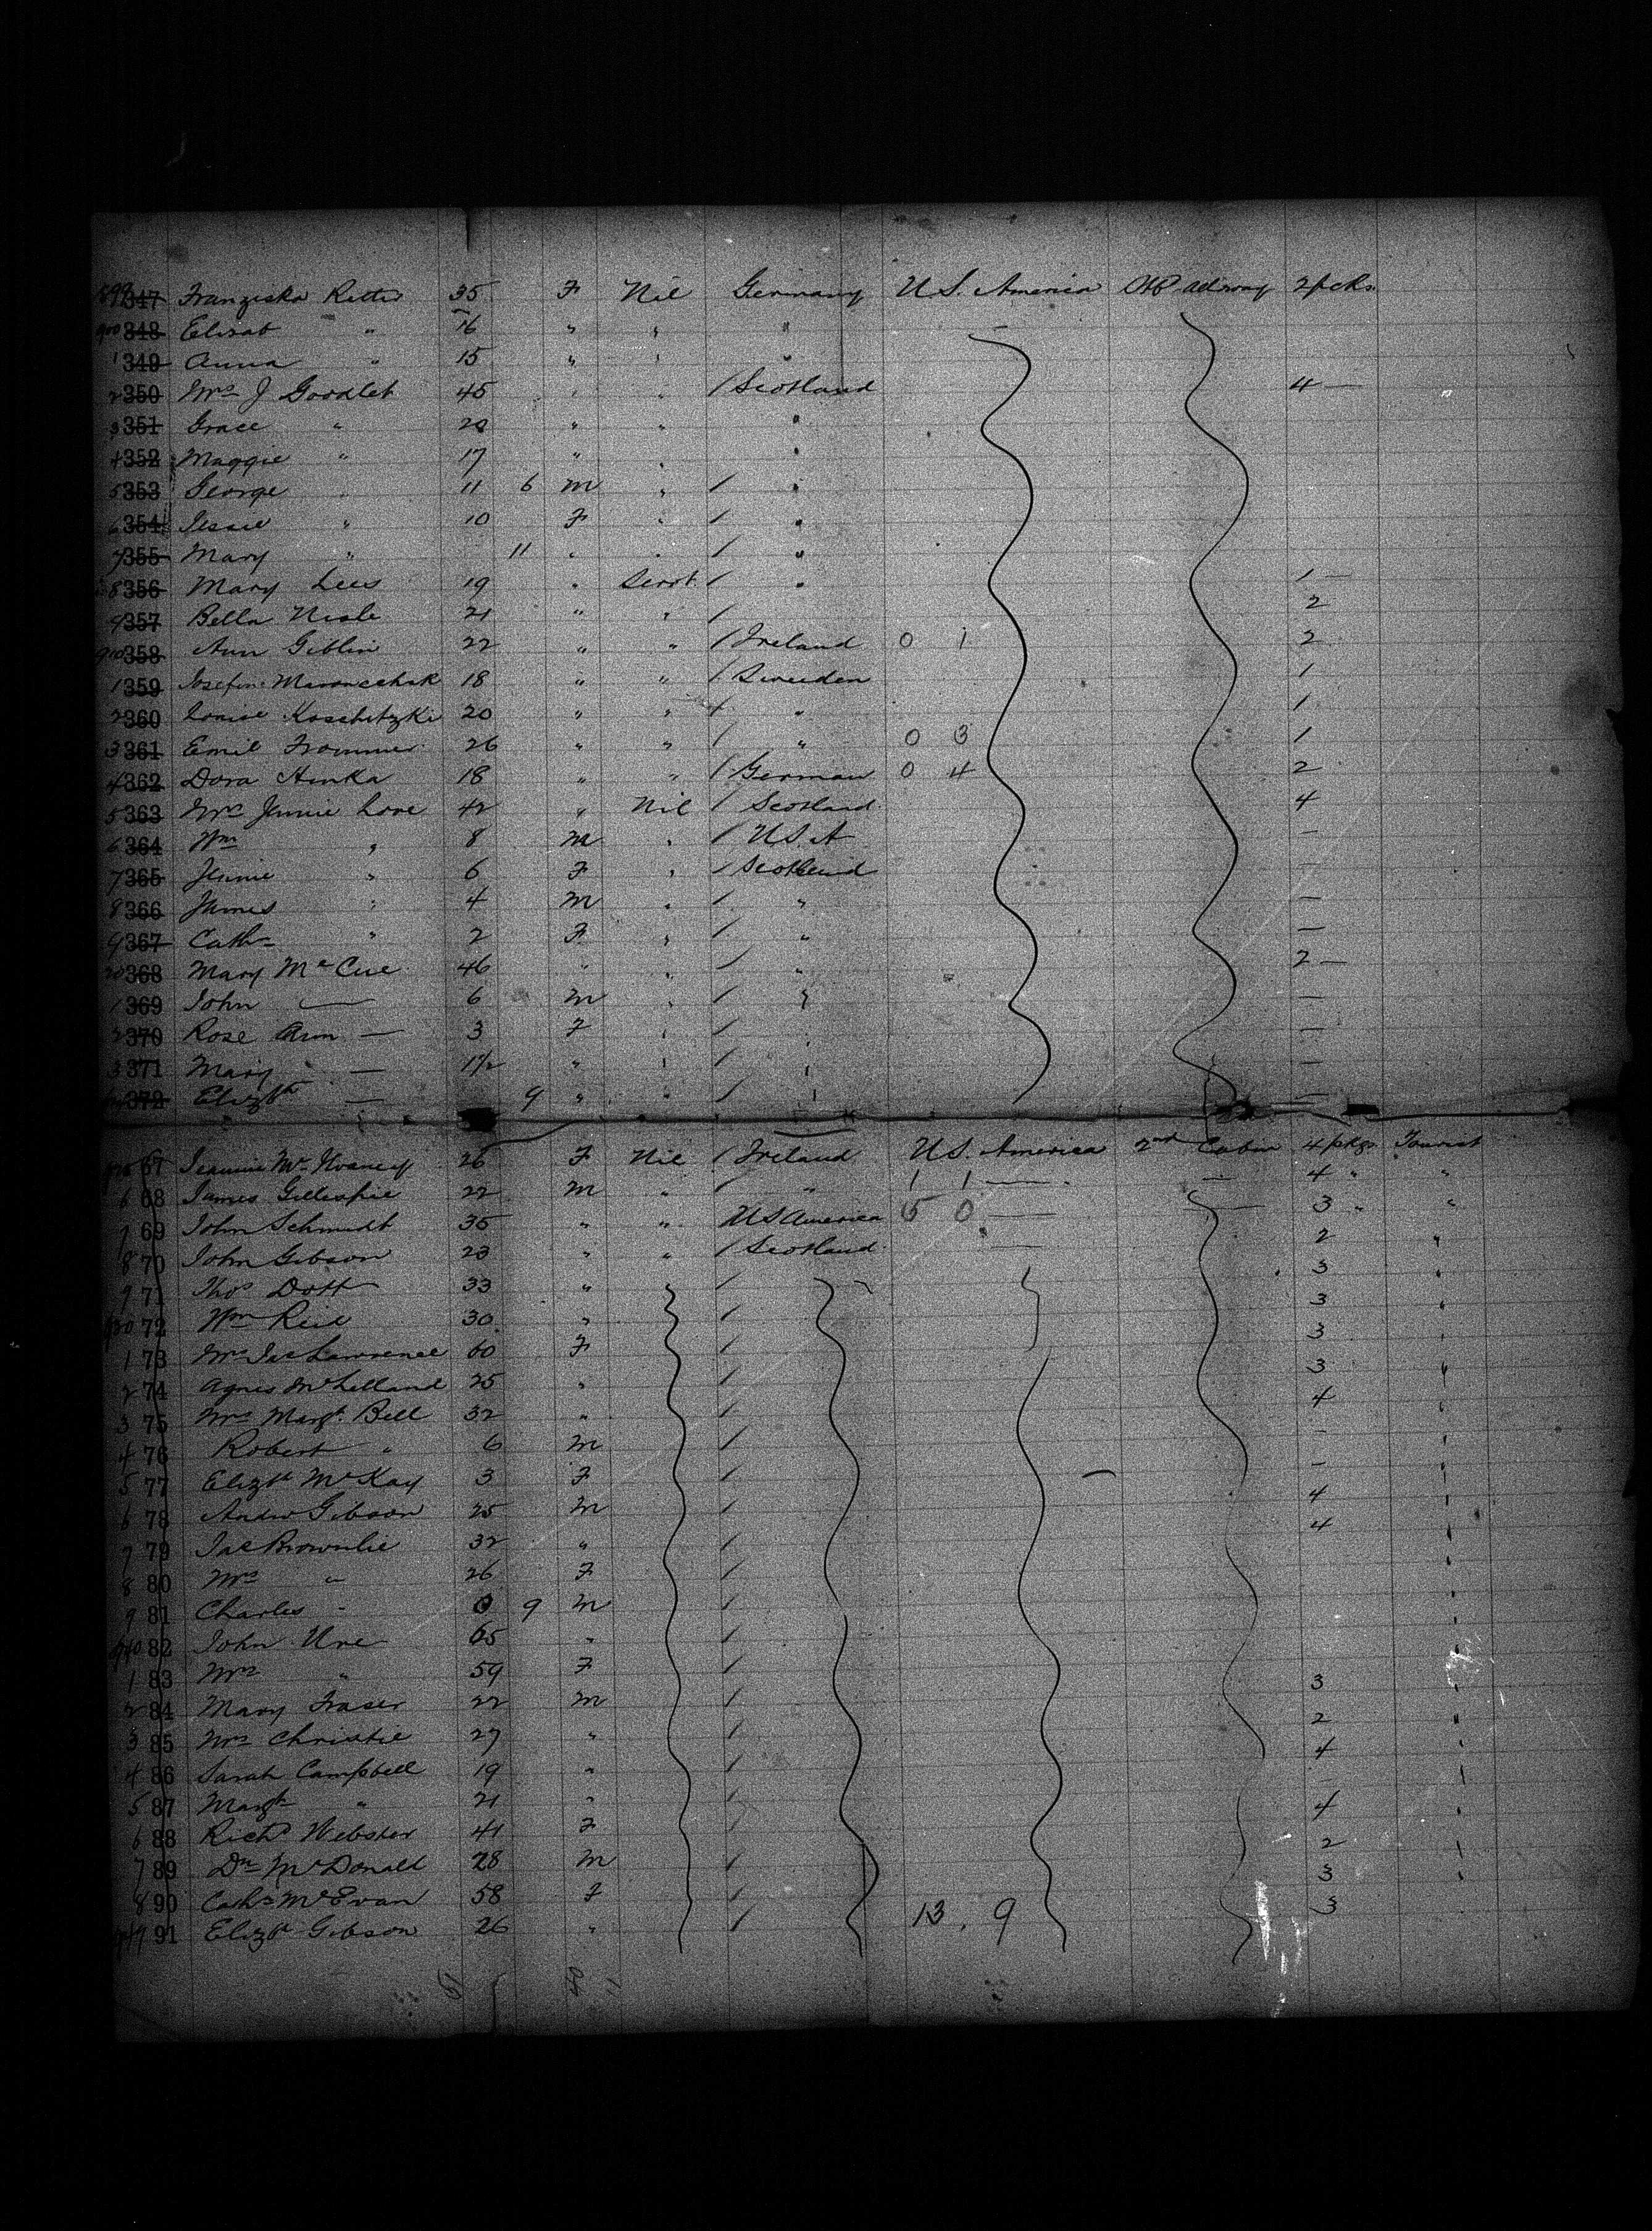 899 347 Franziska Retter 35 F Nil Germany U.S. America 2 pcks.
900 348 Elisab " 16 " " "
1 349 Anna " 15 " " "
2 350 Mrs J Goodlet 45 " " / Scotland 4 —
3 351 Grace " 20 " " "
4 352 Maggie " 17 " " "
5 353 George " 11 6 M " / "
6 354 Jessie " 10 F " / "
7 355 Mary " 11 " " / "
8 356 Mary Lees 19 " Servt / " 1 —
9 357 Bella 21 " " / 2
910 358 Ann Giblin 22 " " / Ireland 0 1 2
1 359 18 " " / Sweden 1
2 360 Louise Koschitzki 20 " " / " 1
3 361 Emil Frommer 26 " " / " 0 3 1
4 362 Dora 18 " " / German 0 4 2
5 363 Mrs Jennie Love 42 " Nil / Scotland 4
6 364 Wm " 8 M " / U.S.A —
7 365 Jennie " 6 F " / Scotland —
8 366 James " 4 M " / " —
9 367 Cath " 2 F " / " —
20 368 Mary McCue 46 " " / " 2 —
1 369 John — 6 M " / " —
2 370 Rose Ann — 3 F " / " —
3 371 Mary — 1½ " " / " —
372 Elizth — 9 " " / " —
925 67 26 F Nil / Ireland U.S. America 2nd Cabin 4 pkgs Tourist
6 68 James Gillespie 22 M " / " 1 1 — 4 " "
7 69 John Schmidt 35 " " US America 5 0 — 3 " "
8 70 John Gibson 23 " " / Scotland 2 "
9 71 Thos Dott 33 " / 3 "
930 72 Wm Reid 30 " / 3 "
1 73 Mrs Jas Lawrence 60 F / 3 "
2 74 Agnes McLelland 25 " / 3 "
3 75 Mrs Margt. Bell 32 " / 4 "
4 76 Robert " 6 M / - "
5 77 Elizth McKay 3 F / - "
6 78 Andw Gibson 25 M / 4 "
7 79 Jas Brownlie 32 " / 4 "
8 80 Mrs " 26 F / "
9 81 Charles " 0 9 M / "
940 82 John Ure 65 " / "
1 83 Mrs " 59 F / 3 "
2 84 Mary Fraser 22 M / 2 "
3 85 Mrs Christie 27 " / 4 "
4 86 Sarah Campbell 19 " / - "
5 87 Margt " 21 " / 4 "
6 88 Richd Webster 41 F / 2 "
7 89 Dn McDonald 28 M / 3 "
8 90 Cath McEvan 58 F / 3
949 91 Elizth Gibson 26 " / 13. 9